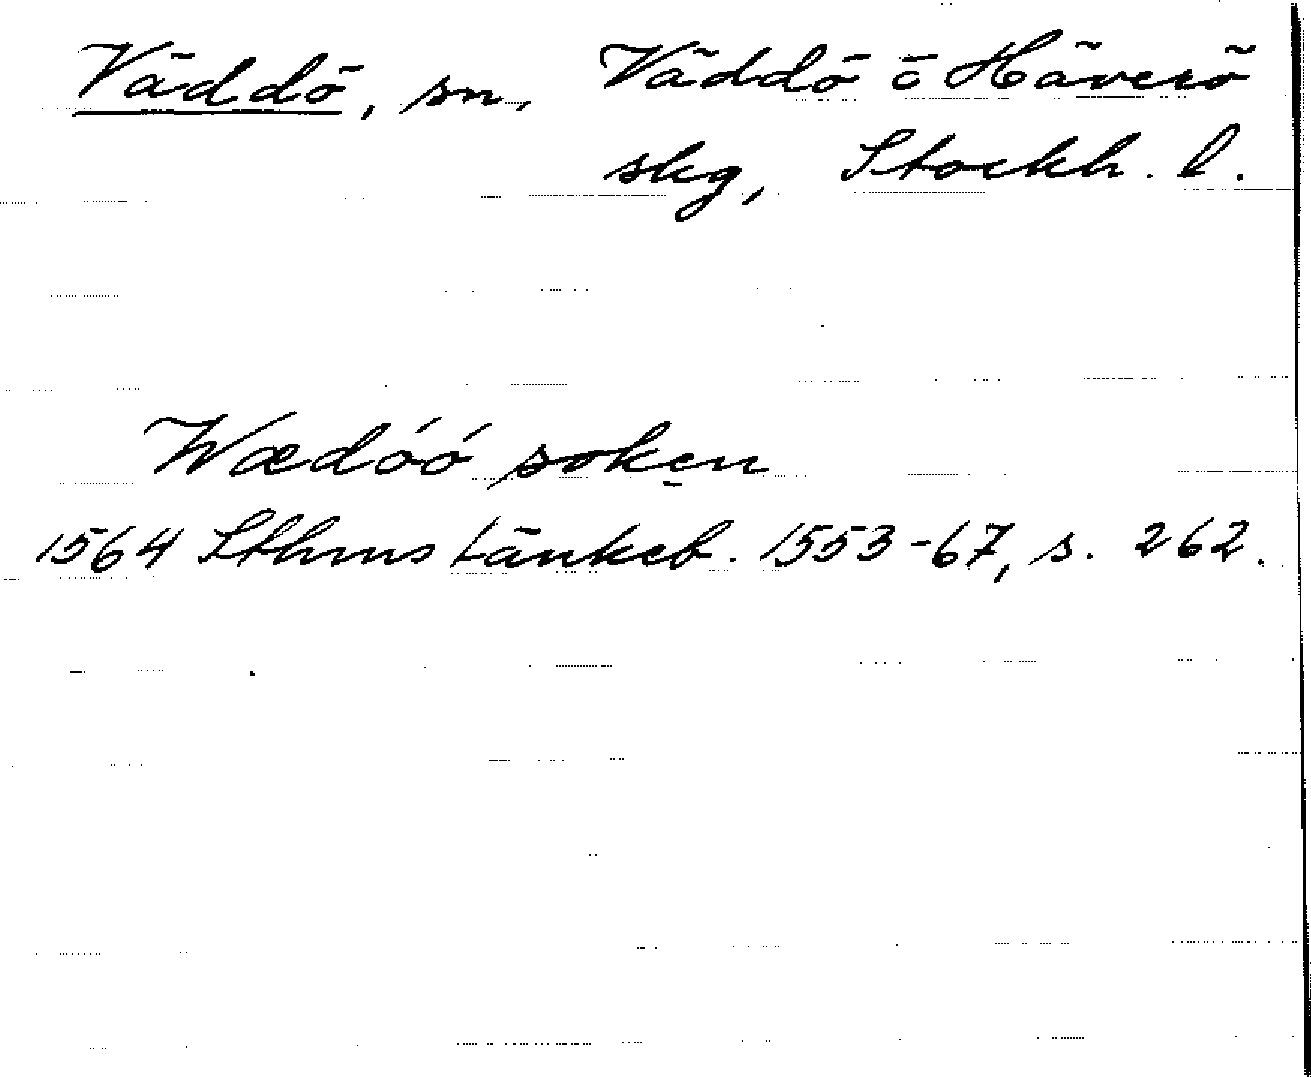 Väddö, sn, Väddö o Häverö
skg, Stockh. l.
Wædóó soken
1564 Sthms tänkeb. 1553-67, s. 262.